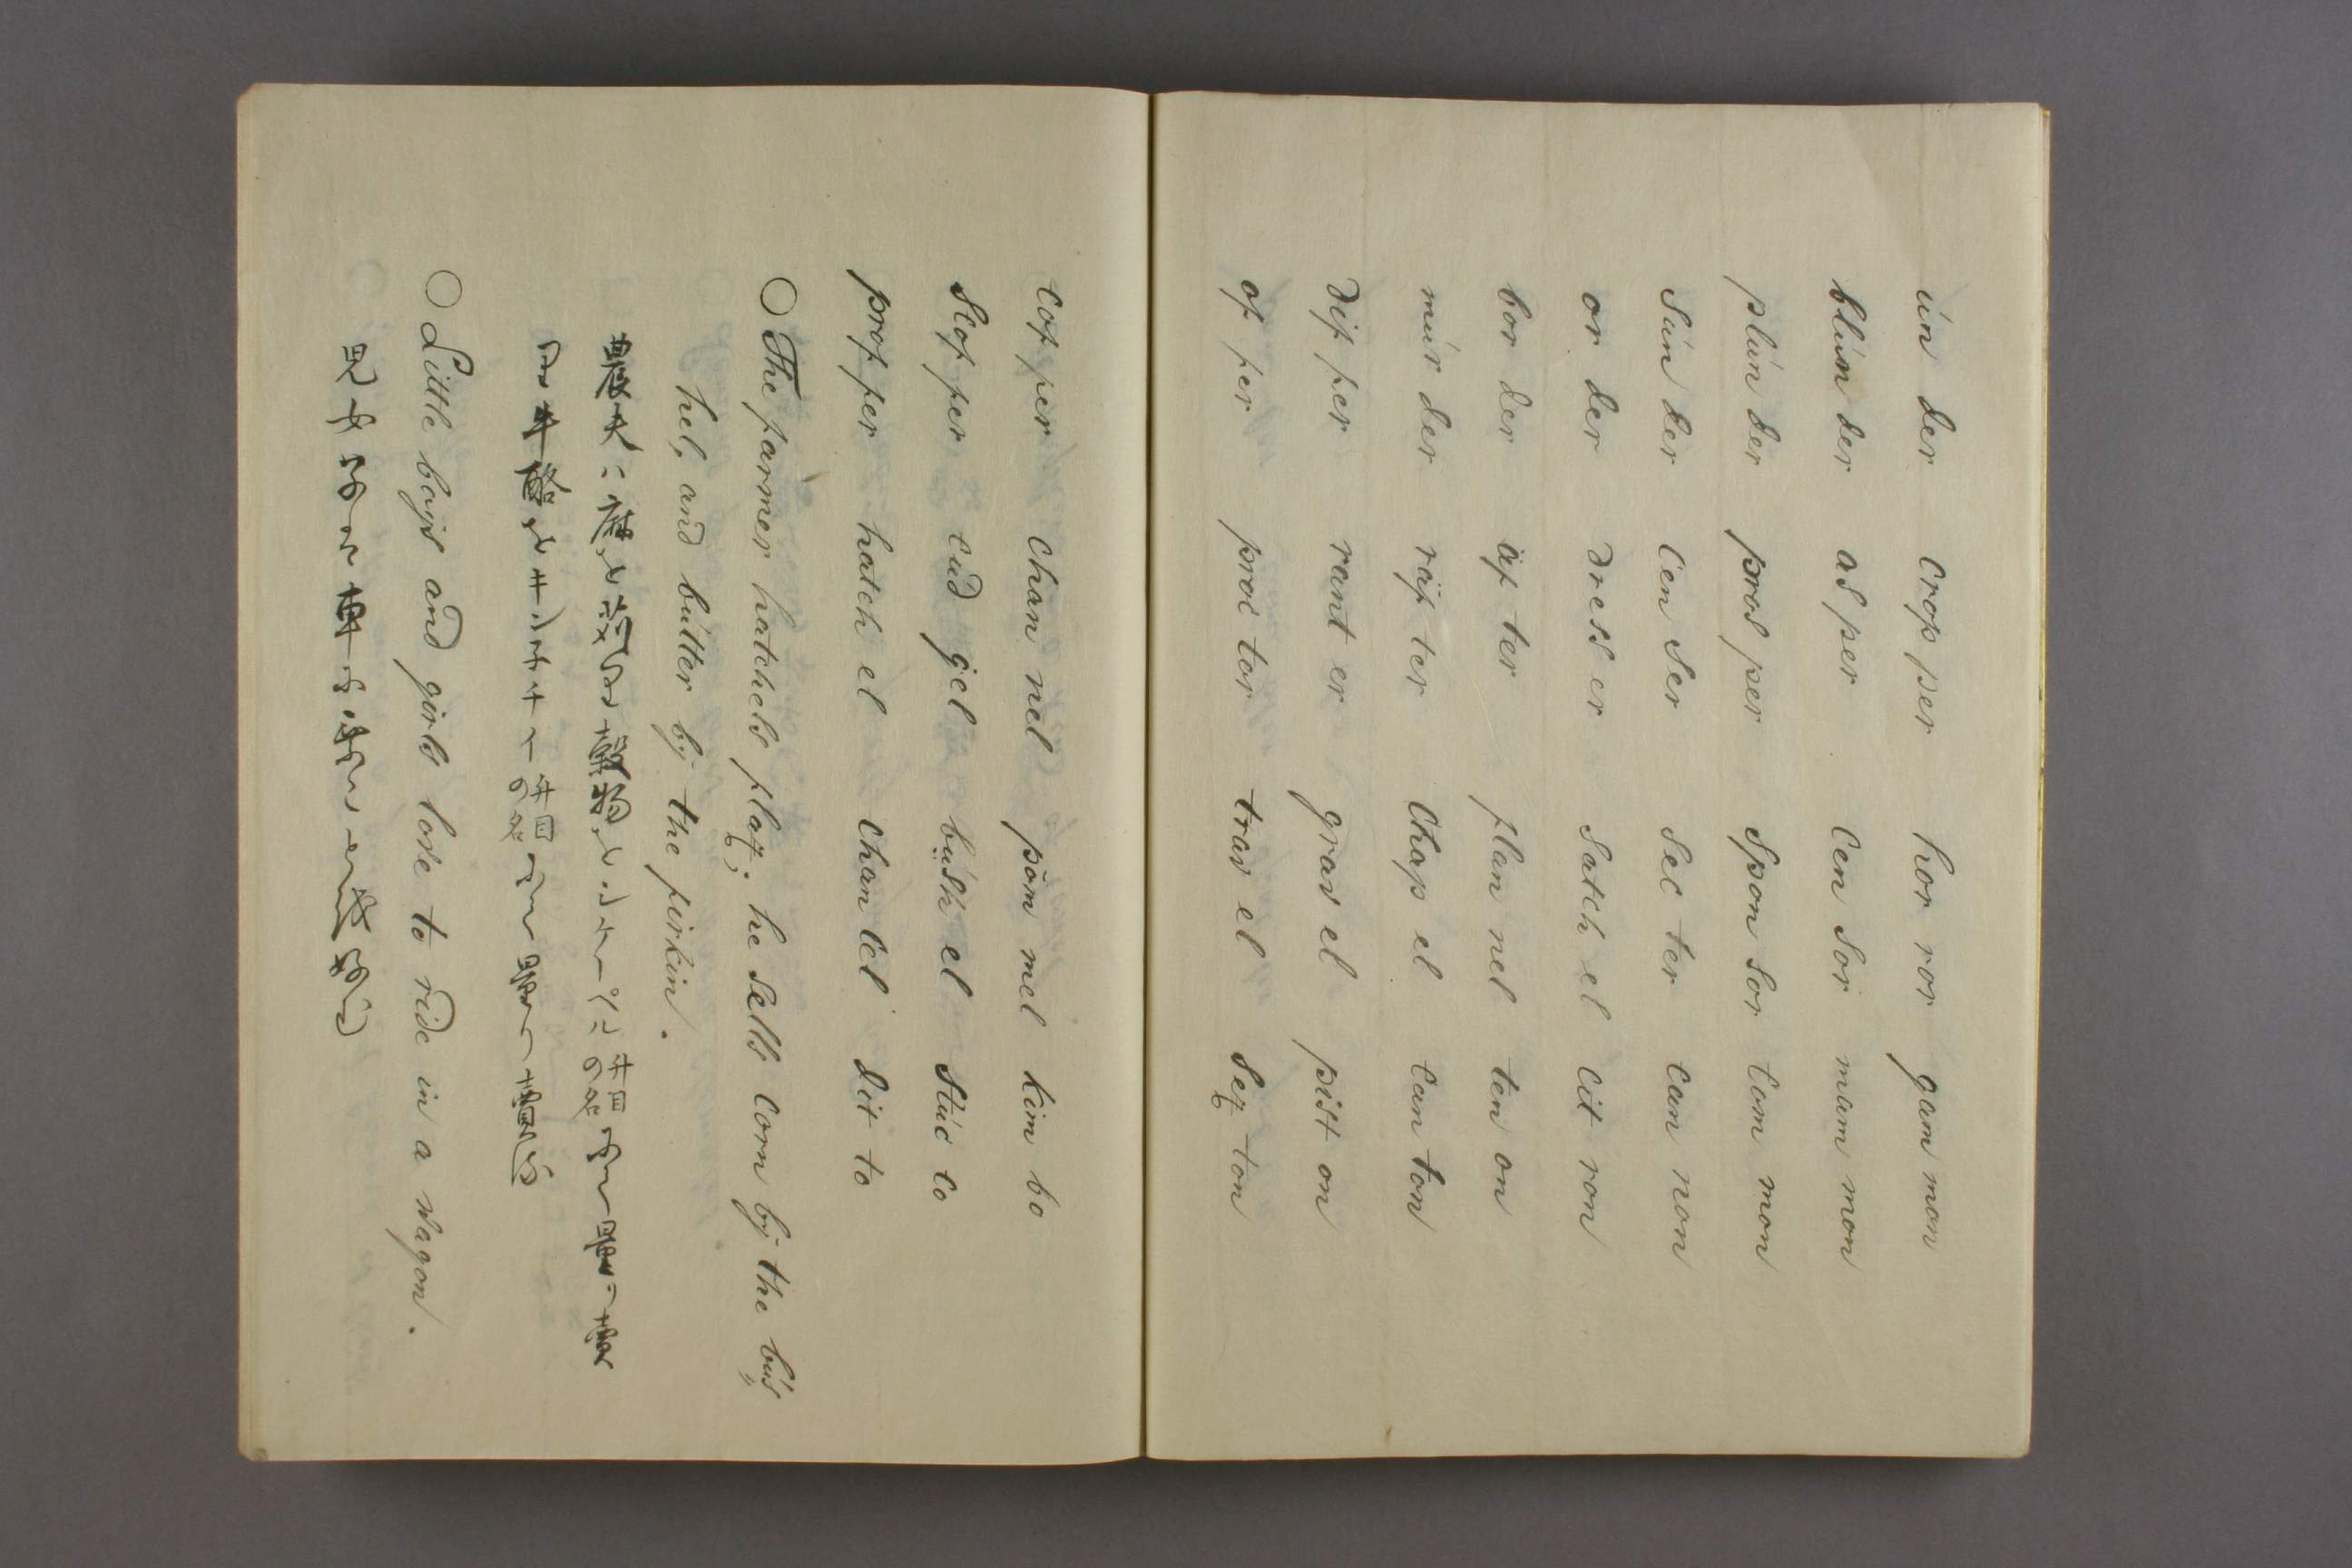 ún der crop per hor ror gam mon
blún der as per cen sor mam mon
plún der pros per spon sor com mon
sún der cen ser sec ter can non
or der dress er satch el cit ron
bor der äf ter flan nel ten on
múr der räf ter chap el can ton
dif fer rant er grav el pist on
of fer proc tor trav el sex ton
cof fer chan nel pom mel kim bo
stof fer cud gel búsh el stuc co
prof fer hatch el chan cel dit to
○ The farmer hatchels flax; he sells corn by the bús
hel, and bútter by the firkin.
農夫ハ麻を 而 穀物を 升目の名 量 賣
牛酪を 升目の名 量 賣
○ Little boys and girls love to ride in a wagon.
車 好